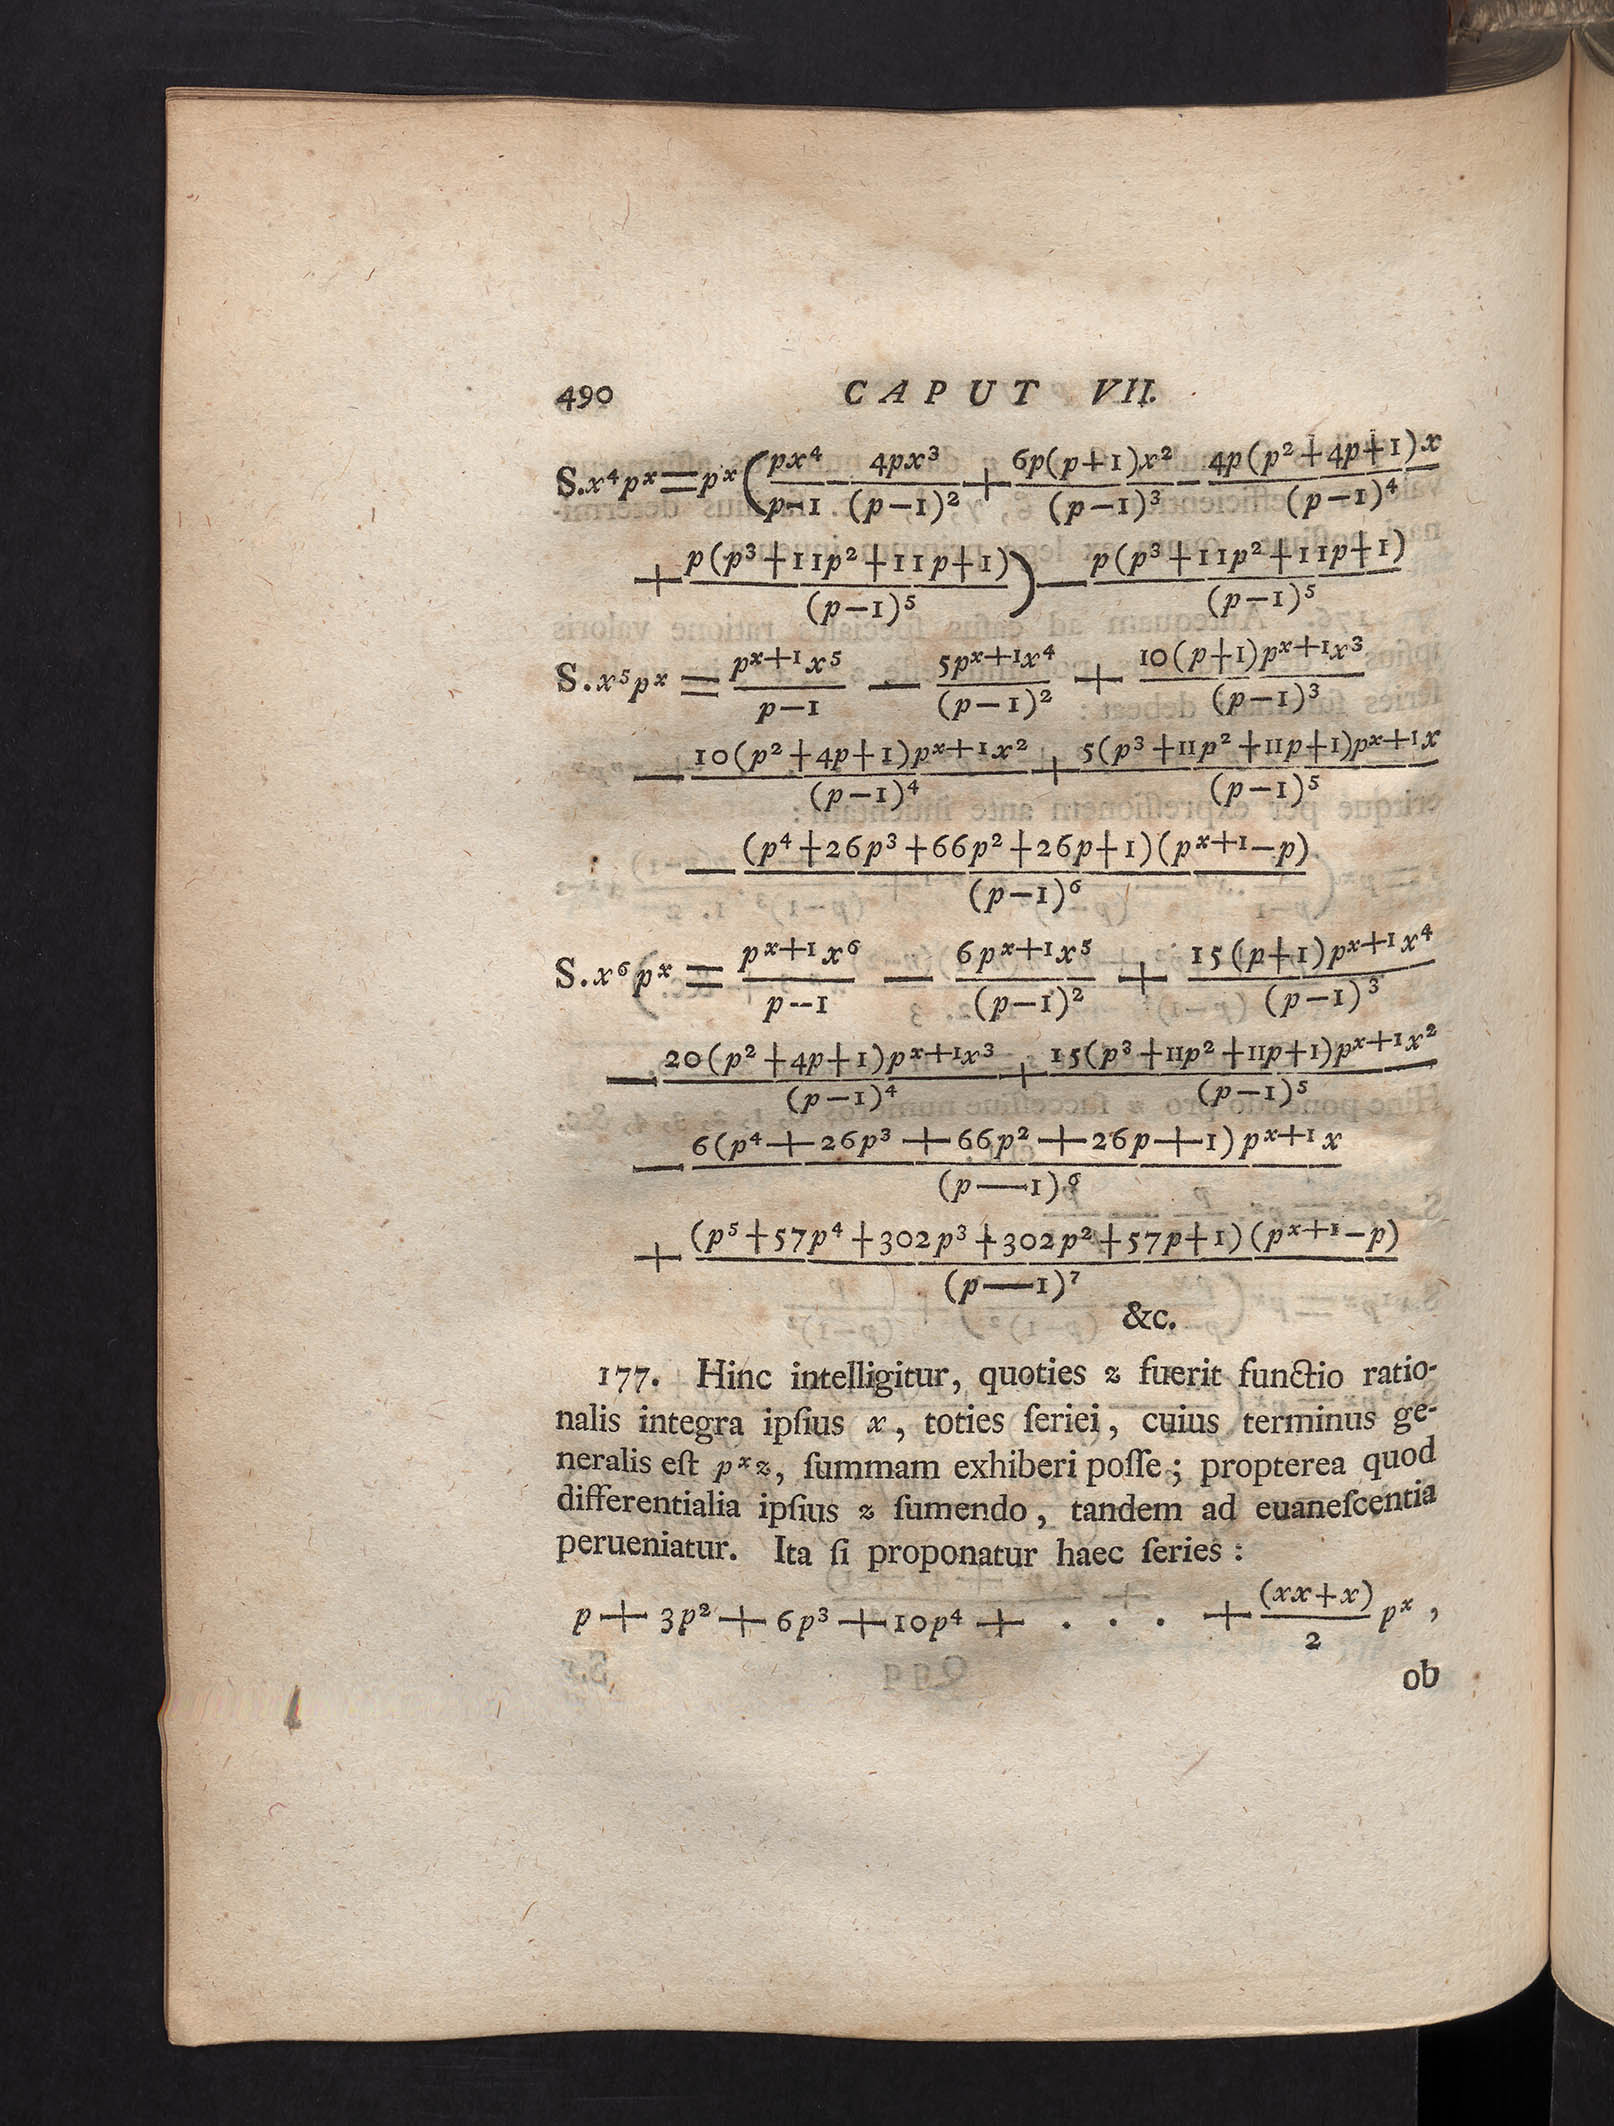 490 CAPUT VII.
S.x⁴pˣ = pˣ( px⁴/(p−1) − 4px³/(p−1)² + 6p(p+1)x²/(p−1)³ − 4p(p²+4p+1)x/(p−1)⁴
+ p(p³+11p²+11p+1)/(p−1)⁵ ) − p(p³+11p²+11p+1)/(p−1)⁵
S.x⁵pˣ = pˣ⁺¹x⁵/(p−1) − 5pˣ⁺¹x⁴/(p−1)² + 10(p+1)pˣ⁺¹x³/(p−1)³
− 10(p²+4p+1)pˣ⁺¹x²/(p−1)⁴ + 5(p³+11p²+11p+1)pˣ⁺¹x/(p−1)⁵
− (p⁴+26p³+66p²+26p+1)(pˣ⁺¹−p)/(p−1)⁶
S.x⁶pˣ = pˣ⁺¹x⁶/(p−1) − 6pˣ⁺¹x⁵/(p−1)² + 15(p+1)pˣ⁺¹x⁴/(p−1)³
− 20(p²+4p+1)pˣ⁺¹x³/(p−1)⁴ + 15(p³+11p²+11p+1)pˣ⁺¹x²/(p−1)⁵
− 6(p⁴+26p³+66p²+26p+1)pˣ⁺¹x/(p—1)⁶
+ (p⁵+57p⁴+302p³+302p²+57p+1)(pˣ⁺¹−p)/(p—1)⁷
&c.
177. Hinc intelligitur, quoties z fuerit functio ratio-
nalis integra ipſius x, toties ſeriei, cuius terminus ge-
neralis eſt pˣz, ſummam exhiberi poſſe; propterea quod
differentialia ipſius z ſumendo, tandem ad euaneſcentia
perueniatur. Ita ſi proponatur haec ſeries:
p + 3p² + 6p³ + 10p⁴ + . . . + (xx+x)/2 pˣ,
ob